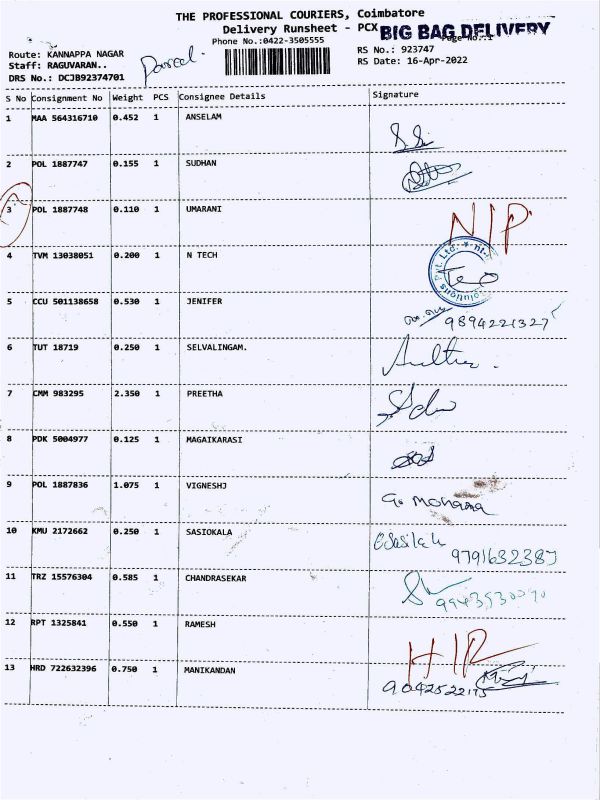 THE PROFESSIONAL COURIERS, Coimbatore
Delivery Runsheet - PCX BIG BAG DELIVERY
Phone No.:0422-3505555 Page No.:1
Route: KANNAPPA NAGAR RS No.: 923747
Staff: RAGUVARAN.. Parcel. RS Date: 16-Apr-2022
DRS No.: DCJB92374701
S No Consignment No Weight PCS Consignee Details Signature
1 MAA 564316710 0.452 1 ANSELAM
2 POL 1887747 0.155 1 SUDHAN
3 POL 1887748 0.110 1 UMARANI N/P
4 TVM 13038051 0.200 1 N TECH
5 CCU 501138658 0.530 1 JENIFER
9894221327
6 TUT 18719 0.250 1 SELVALINGAM.
7 CMM 983295 2.350 1 PREETHA
8 PDK 5004977 0.125 1 MAGAIKARASI
9 POL 1887836 1.075 1 VIGNESHJ G. Mohana
10 KMU 2172662 0.250 1 SASIOKALA
9791632387
11 TRZ 15576304 0.585 1 CHANDRASEKAR
12 RPT 1325841 0.550 1 RAMESH
13 HRD 722632396 0.750 1 MANIKANDAN